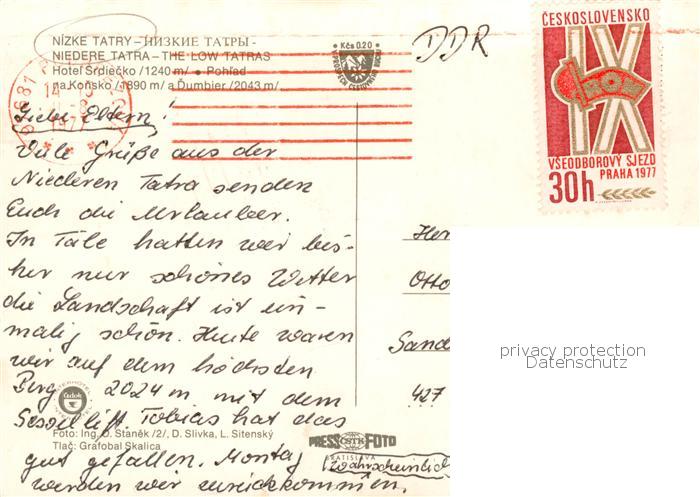 NÍZKE TATRY - НИЗКИЕ ТАТРЫ -
NIEDERE TATRA - THE LOW TATRAS
Hotel Srdiečko /1240 m/ • Pohľad
na Konsko /1890 m/ a Ďumbier /2043 m/
Kčs 0.20
DDR
ČESKOSLOVENSKO
IX
ROH
VŠEODBOROVÝ SJEZD
PRAHA 1977
30h
1977
Liebe Eltern!
Viele Grüße aus der
Niederen Tatra senden
Euch die Urlauber.
In Tále hatten wir bis-
her nur schönes Wetter
die Landschaft ist ein-
malig schön. Heute waren
wir auf dem höchsten
Berg 2024 m mit dem
Sessellift. Tobias hat das
gut gefallen. Montag (wahrscheinlich
werden wir zurückkommen.
Her
Otto
Sand
427
privacy protection
Datenschutz
čedok
Foto: Ing. O. Staněk /2/, D. Slivka, L. Sitenský
Tlač: Grafobal Skalica
PRESS ČSTK FOTO
BRATISLAVA